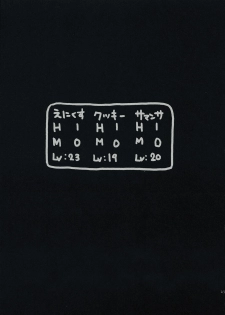 えにくす クッキー サマンサ
H 1 H 1 H 1
M 0 M 0 M 0
Lv:23 Lv:19 Lv:20